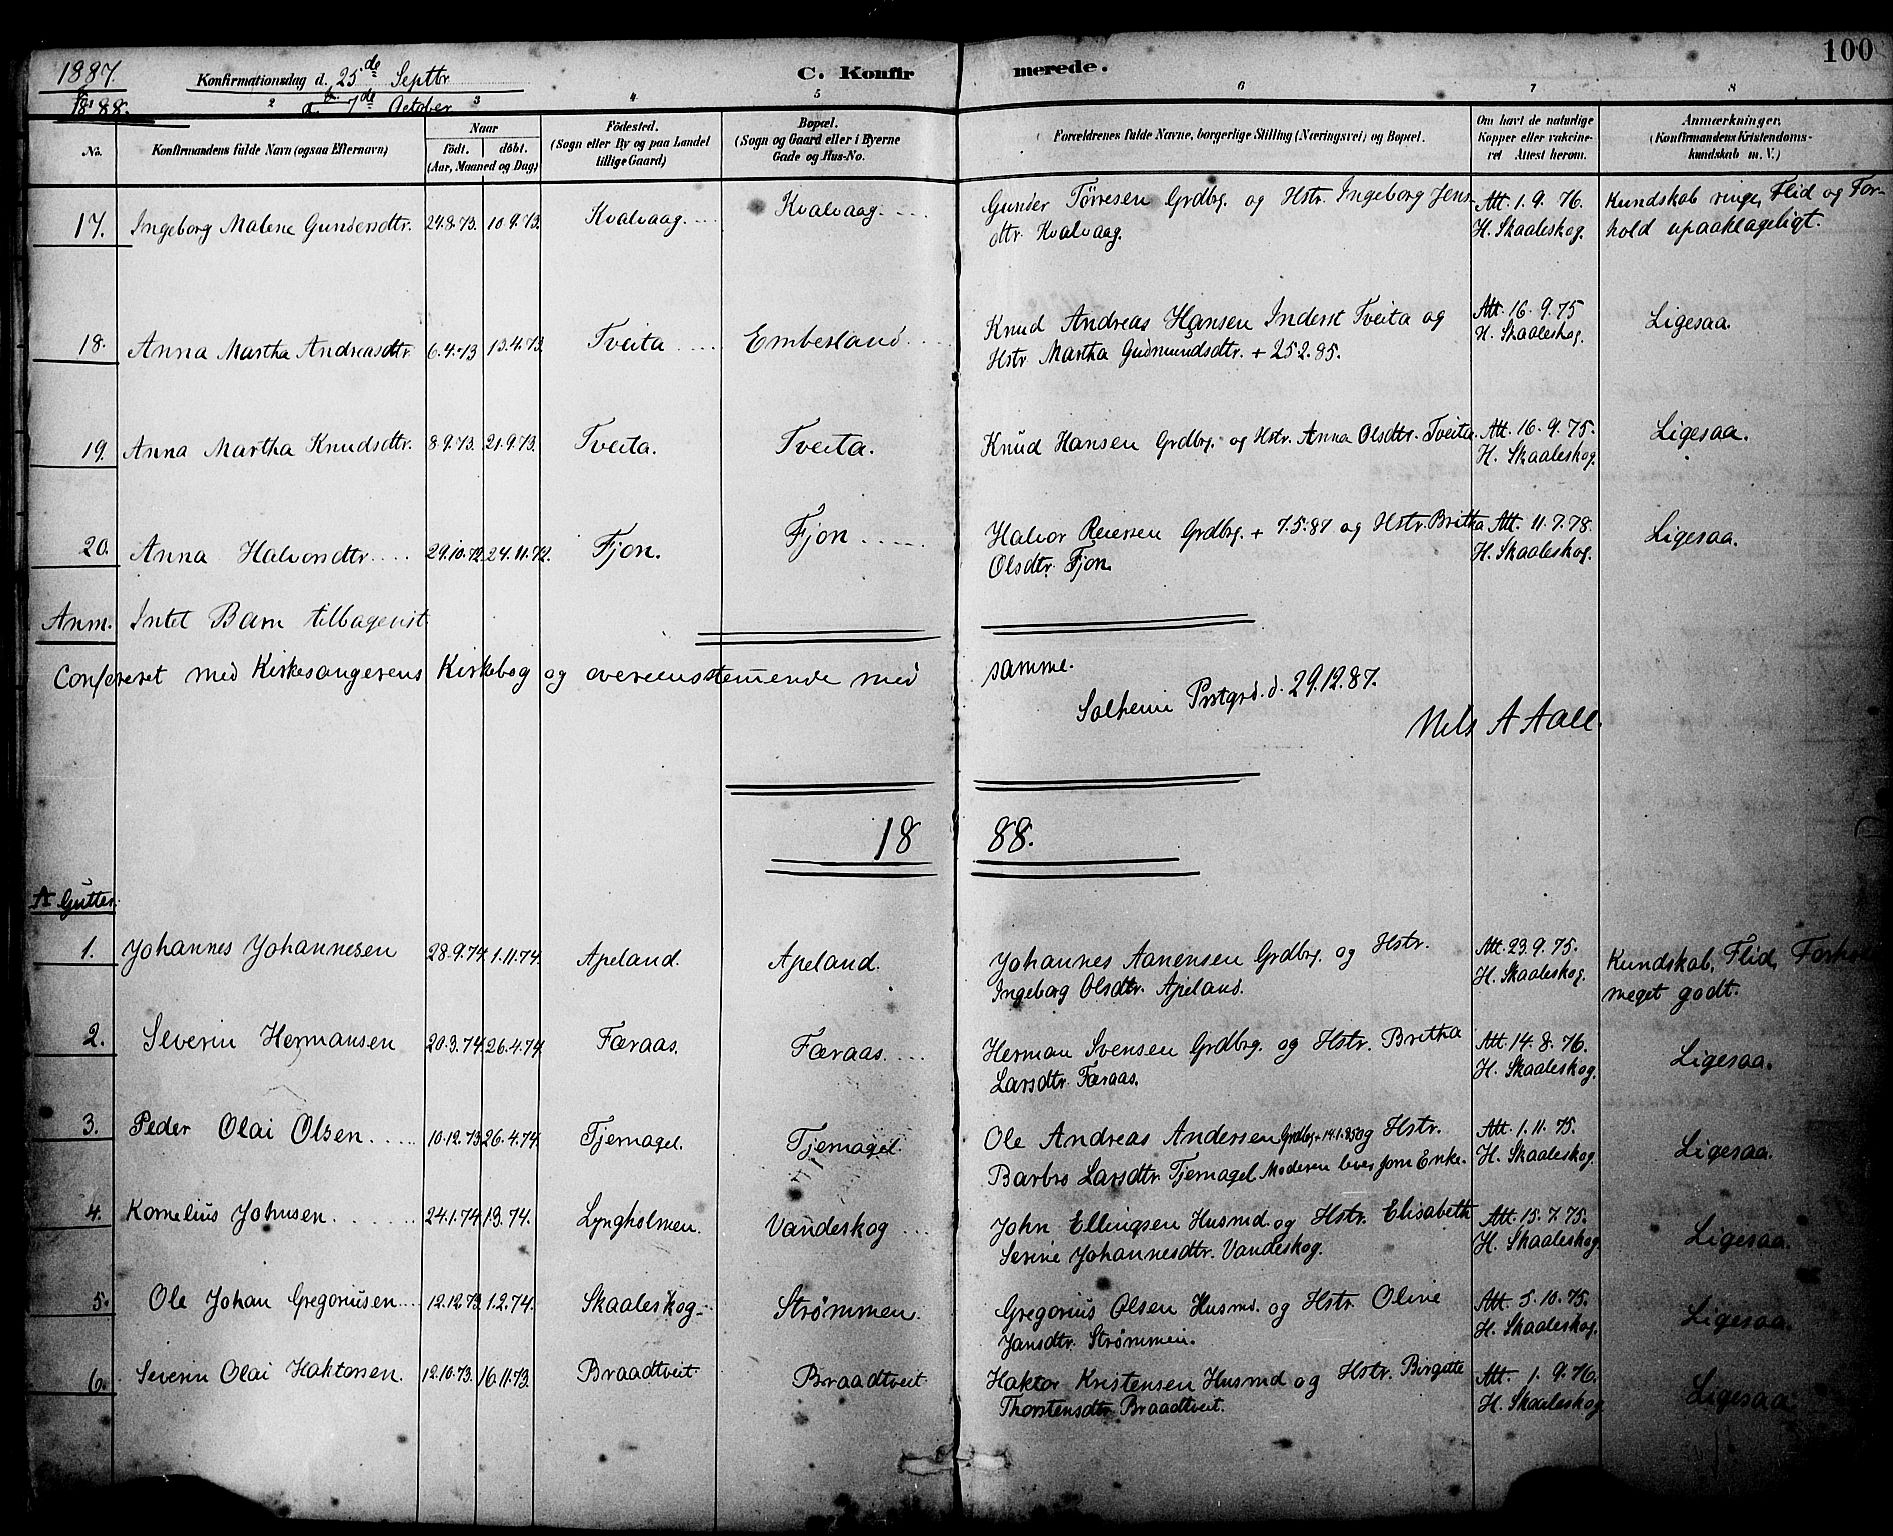 1887. Konfirmationsdag d. 25de Septbr. C. Konfirmerede. 100
1888. d. 7de October
2 3 4 5 6 7 8
No. Konfirmandens fulde Navn (ogsaa Efternavn) Naar født. døbt. (Aar, Maaned og Dag) Födested. (Sogn eller By og paa Landet tillige Gaard) Bopæl. (Sogn og Gaard eller i Byerne Gade og Hus-No. Forældrenes fulde Navne, borgerlige Stilling (Næringsvei) og Bopæl. Om havt de naturlige Kopper eller vakcineret Attest herom. Anmærkninger, (Konfirmandens Kristendomskundskab m. V.)
17. Ingeborg Malene Gundersdtr. 24.8.73. 10.9.73. Kvalvaag Kvalvaag Gunder Tørresen Grdbrg. og Hstr. Ingeborg Jens- Att. 1.9.76. Kundskab ringe, Flid og For-
dtr. Kvalvaag. H. Skaaleskog. hold upaaklageligt.
18. Anna Martha Andreasdtr. 6.4.73 13.4.73. Tveita Emberland Knud Andreas Hansen Inderst Tveita og Att. 16.9.75 Ligesaa.
Hstr. Martha Gudmundsdtr. + 25.2.85. H. Skaaleskog.
19. Anna Martha Knudsdtr. 8.9.73. 21.9.73. Tveita. Tveita. Knud Hansen Grdbrg. og Hstr. Anna Olsdtr. Tveita. Att. 16.9.75. Ligesaa.
H. Skaaleskog.
20. Anna Halvorsdtr. 29.10.72. 24.11.72. Fjon. Fjon Halvor Reiersen Grdbrg. + 7.5.87 og Hstr. Britha Att. 11.7.78. Ligesaa.
Olsdtr. Fjon. H. Skaaleskog.
Anm. Intet Barn tilbagevist
Confereret med Kirkesangerens Kirkebog og overensstemmende med samme.
Solheim Prstgrd. d. 29.12.87.
Nils A Aall.
1888.
A Gutter.
1. Johannes Johannesen 28.9.74. 1.11.74. Apeland. Apeland. Johannes Aanensen Grdbrg. og Hstr. Att. 23.9.75. Kundskab, Flid, Forhold
Ingeborg Olsdtr. Apeland. H. Skaaleskog. meget godt.
2. Severin Hermansen 20.3.74. 26.4.74. Færaas. Færaas. Herman Svensen Grdbrg. og Hstr. Britha Att. 14.8.76. Ligesaa.
Larsdtr. Færaas. H. Skaaleskog.
3. Peder Olai Olsen 10.12.73. 26.4.74. Tjernagel. Tjernagel. Ole Andreas Andersen Grdbrg. + 14.1.85 og Hstr. Att. 1.11.75. Ligesaa.
Barbro Larsdtr. Tjernagel Moderen lever som Enke. H. Skaaleskog.
4. Kornelius Johnsen 24.1.74. 1.3.74. Lyngholmen. Vandeskog John Ellingsen Husmd. og Hstr. Elisabeth Att. 15.7.75. Ligesaa.
Serine Johannesdtr. Vandeskog. H. Skaaleskog.
5. Ole Johan Gregoriusen 12.12.73. 1.2.74. Skaaleskog Strømmen. Gregorius Olsen Husmd. og Hstr. Oline Att. 5.10.75. Ligesaa.
Jansdtr. Strømmen. H. Skaaleskog.
6. Severin Olai Haktorsen. 12.10.73. 16.11.73. Braadtveit Braadtveit Haktor Kristensen Husmd og Hstr. Birgitte Att. 1.9.76. Ligesaa.
Thorstensdtr. Braadtveit. H. Skaaleskog